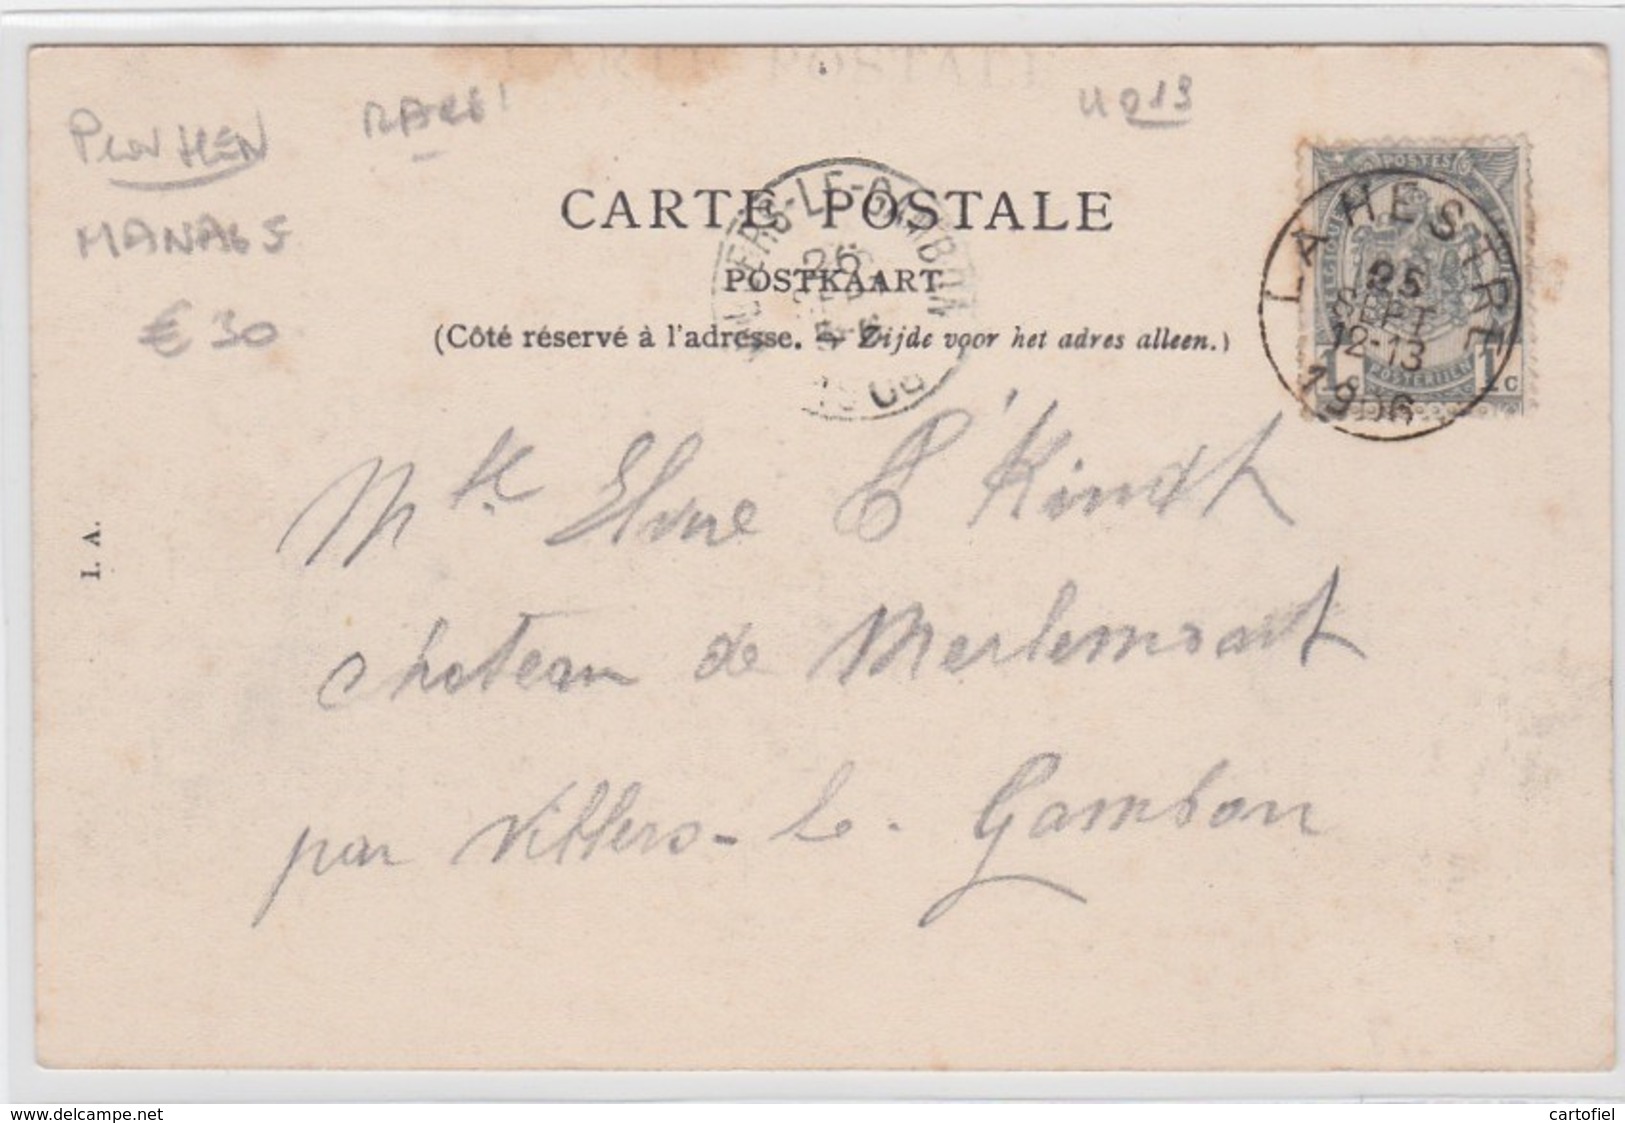 RARE!
MANAGE
€ 30
CARTE POSTALE
POSTKAART
(Côté réservé à l'adresse. — Zijde voor het adres alleen.)
VILLERS-LE-GAMBON
26
POSTES
BELGIQUE
1 POSTERIJEN 1 c
LA HESTRE
25
SEPT
12-13
1906
I. A.
Mlle Elvire 't Kindt
château de Merlemont
par Villers-le-Gambon
www.delcampe.net
cartofiel